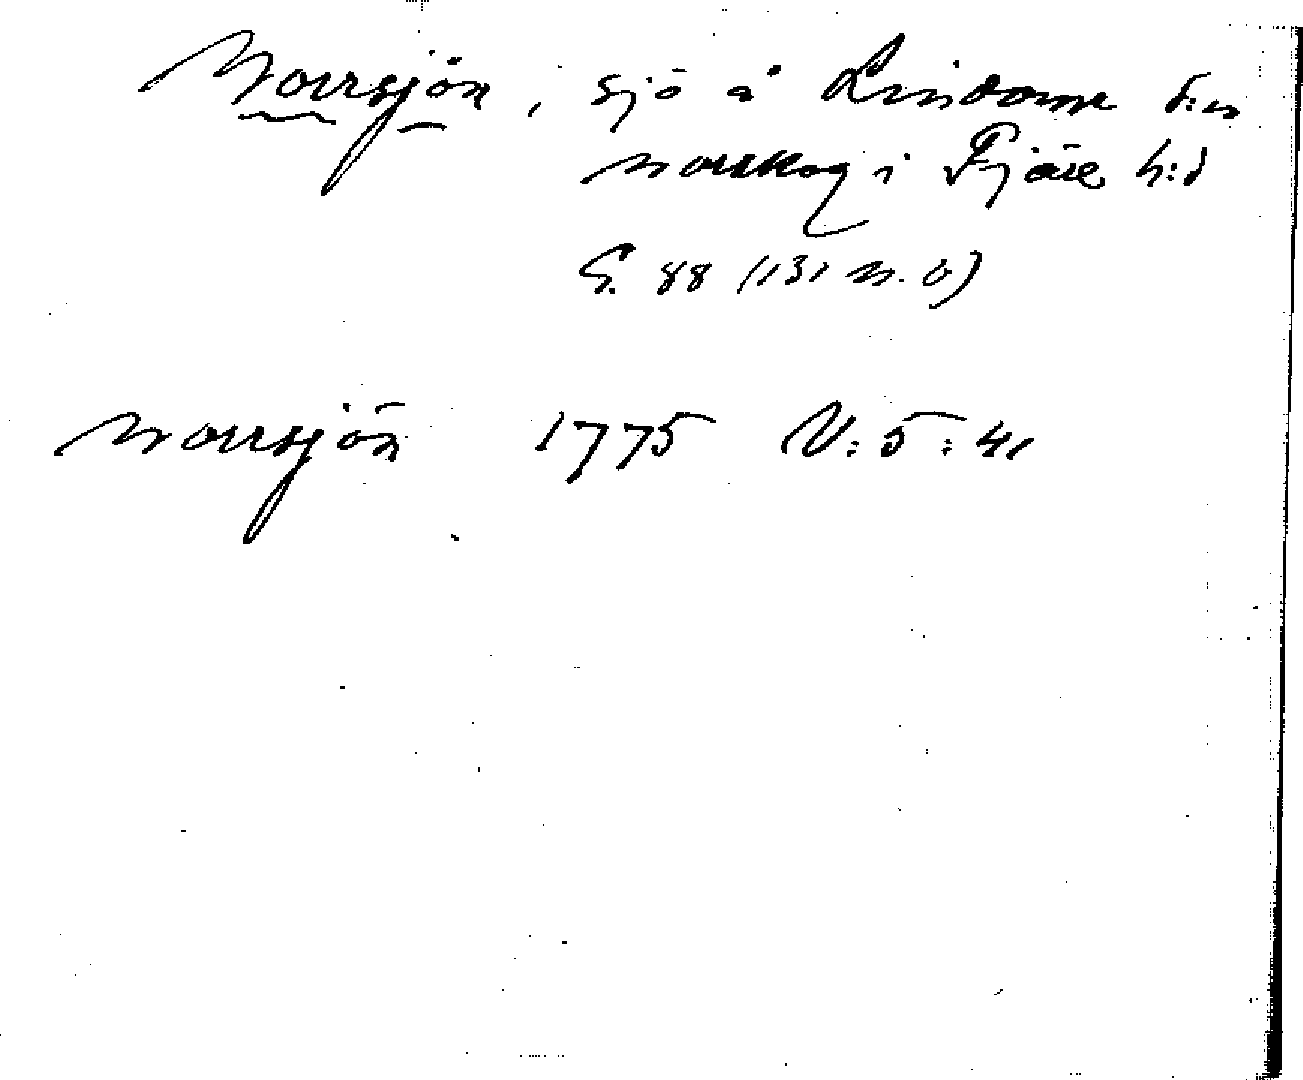 Norrsjön, sjö å Lindome s:ns
norskog i Fjäre h:d
G. 88 (131 m. ö)
Norrsjön 1775 N:5:41